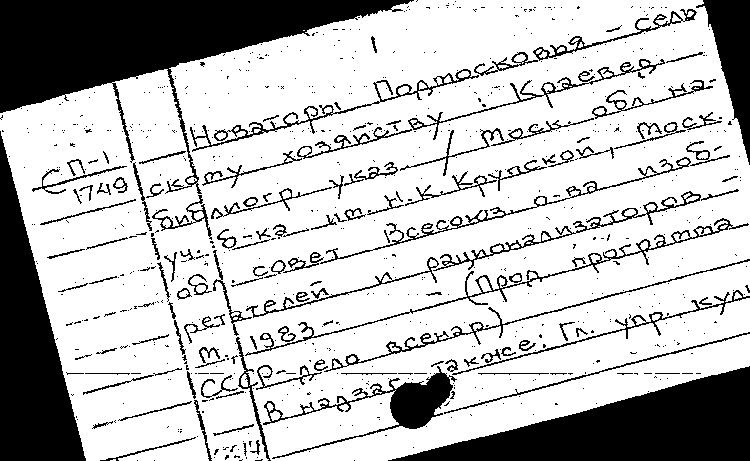 1
Новаторы Подмосковья - сель-
СП-1
1749
скому хозяйству : Краевед.
библиогр. указ. / Моск. обл. на-
уч. б-ка им. Н.К. Крупской, Моск.
обл. совет Всесоюз. о-ва изоб-
ретателей и рационализаторов. -
М., 1983 - . - (Прод. программа
СССР - дело всенар.)
В надзаг. также: Гл. упр. куль